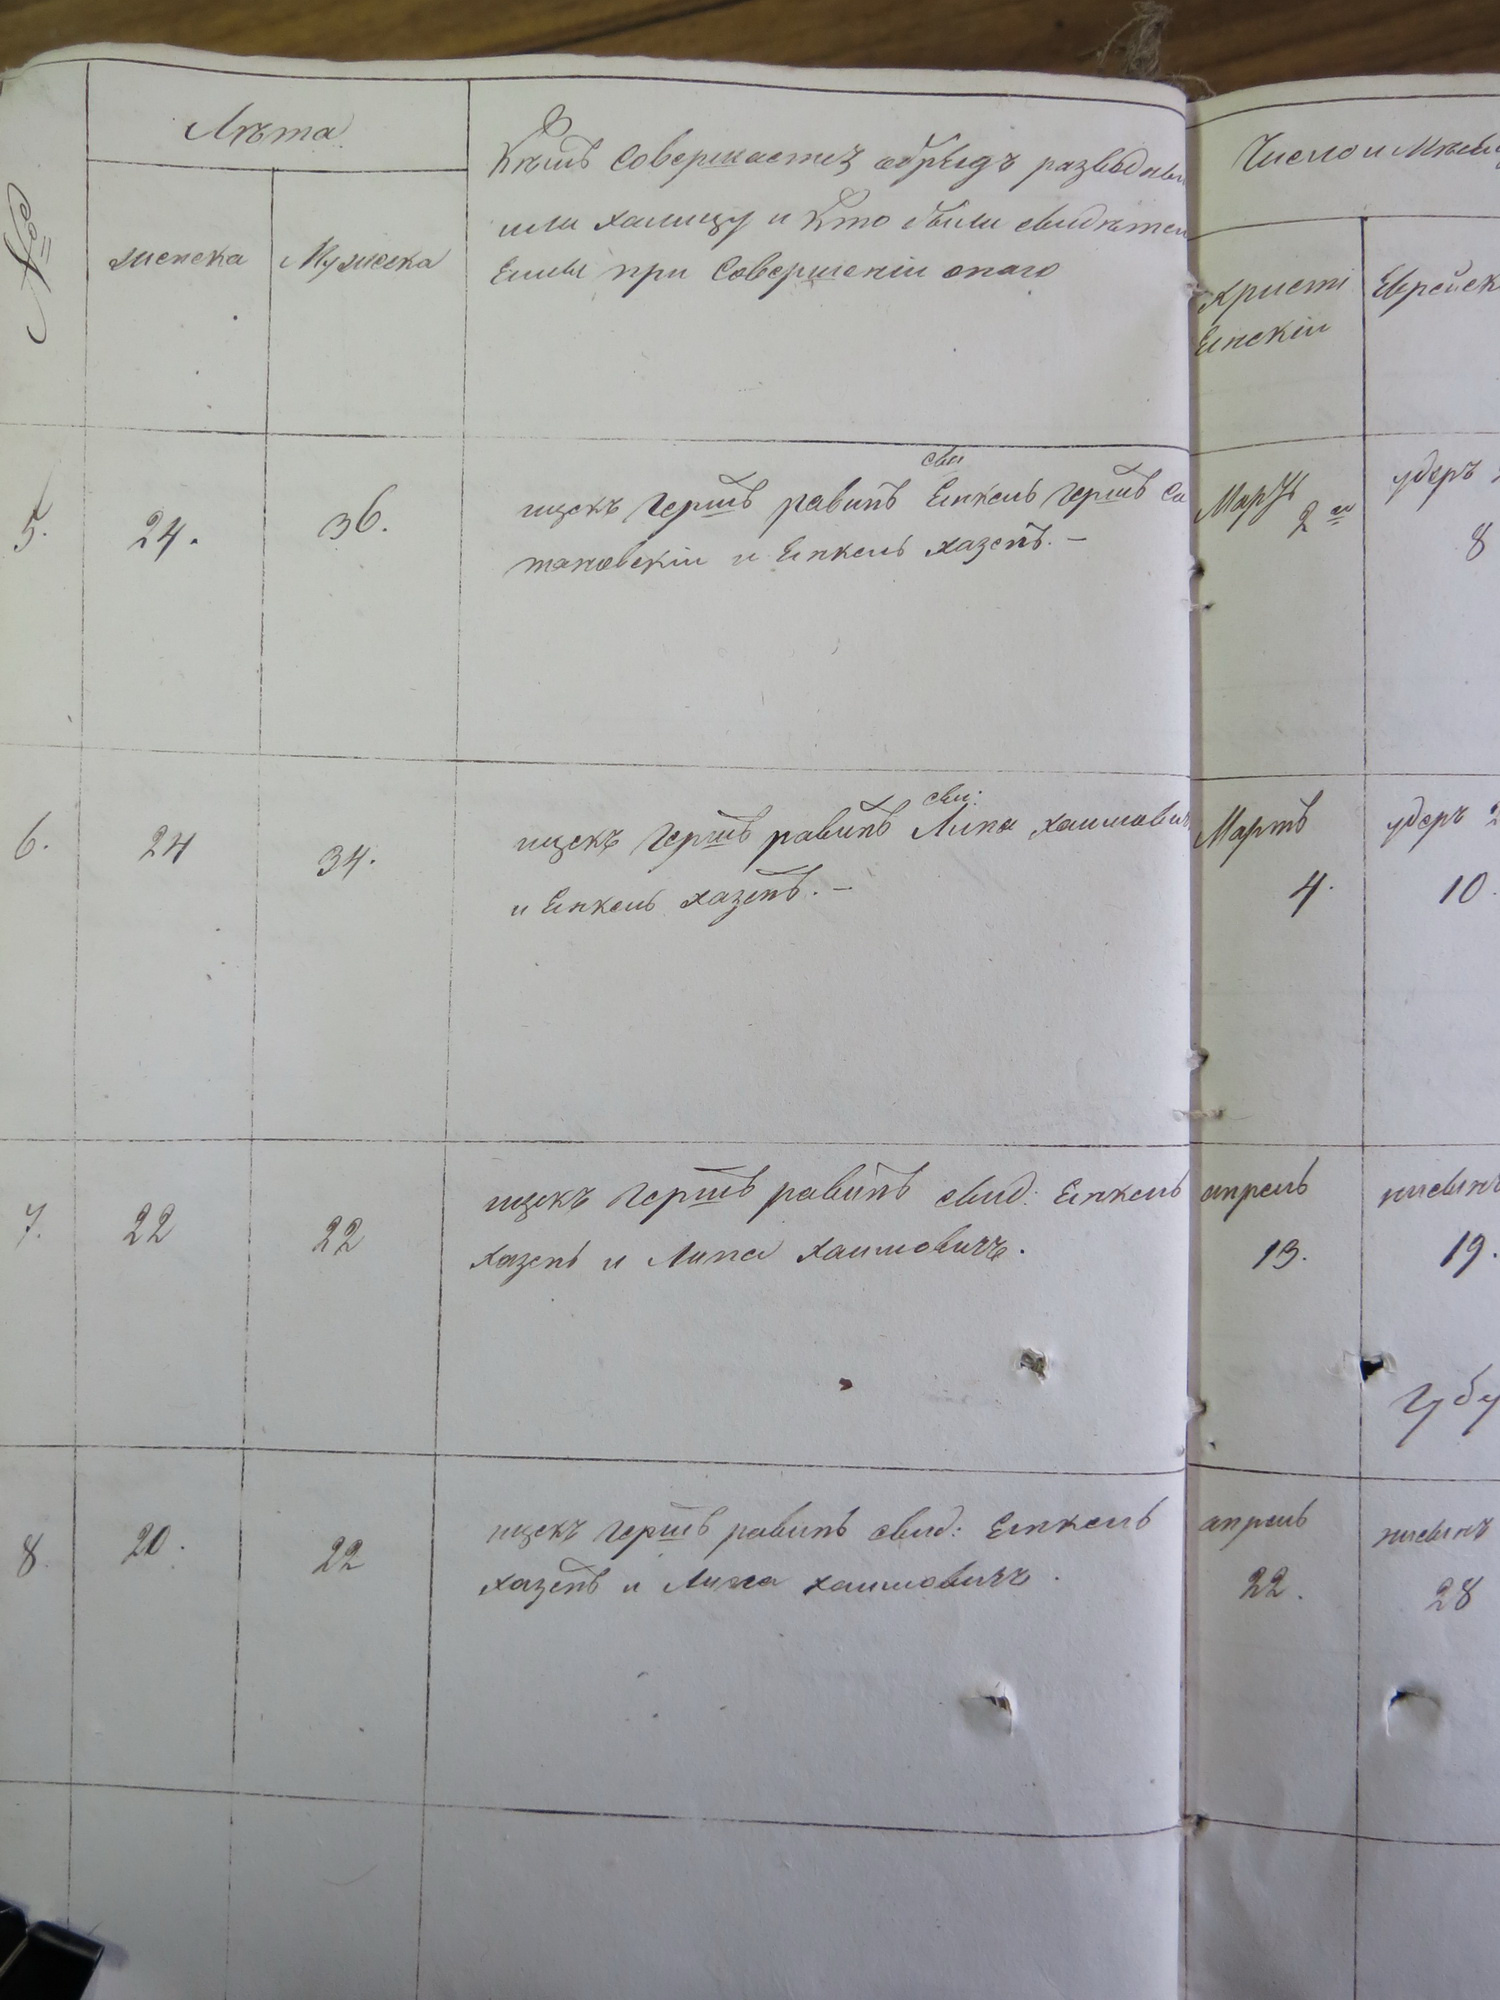 №
Лѣта
женска
Мужеска
Кѣмъ совершается обрядъ разводный
или халицу и Кто были свидѣтел
Елыи при Совершеніи онаго
Число и Мѣсяц
христі
Енскіи
Еврейск
5.
24.
36.
сви
ицекъ гершъ равинъ Енкель гершъ Са
тановскіи и Енкель хазенъ. —
Мартъ
2 и
удеръ
8
6.
24
34.
сви:
ицекъ гершъ равинъ Липа хаимович
и Енкель хазенъ. —
Мартъ
4.
удеръ 2
10.
7.
22
22
ицекъ гершъ равинъ свид: Енкель
хазенъ и Липа хаимовичъ.
апрель
13.
нисынъ
19.
Губ
8.
20.
22
ицекъ гершъ равинъ свид: Енкель
хазенъ и Липа хаимовичъ.
апрель
22.
нисынъ
28